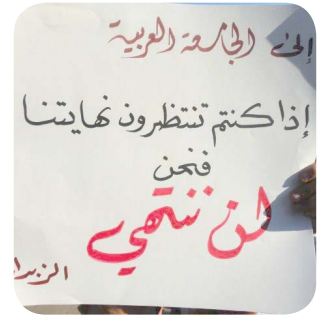 إلى الجامعة العربية
إذا كنتم تنتظرون نهايتنا
فنحن
لن ننتهي